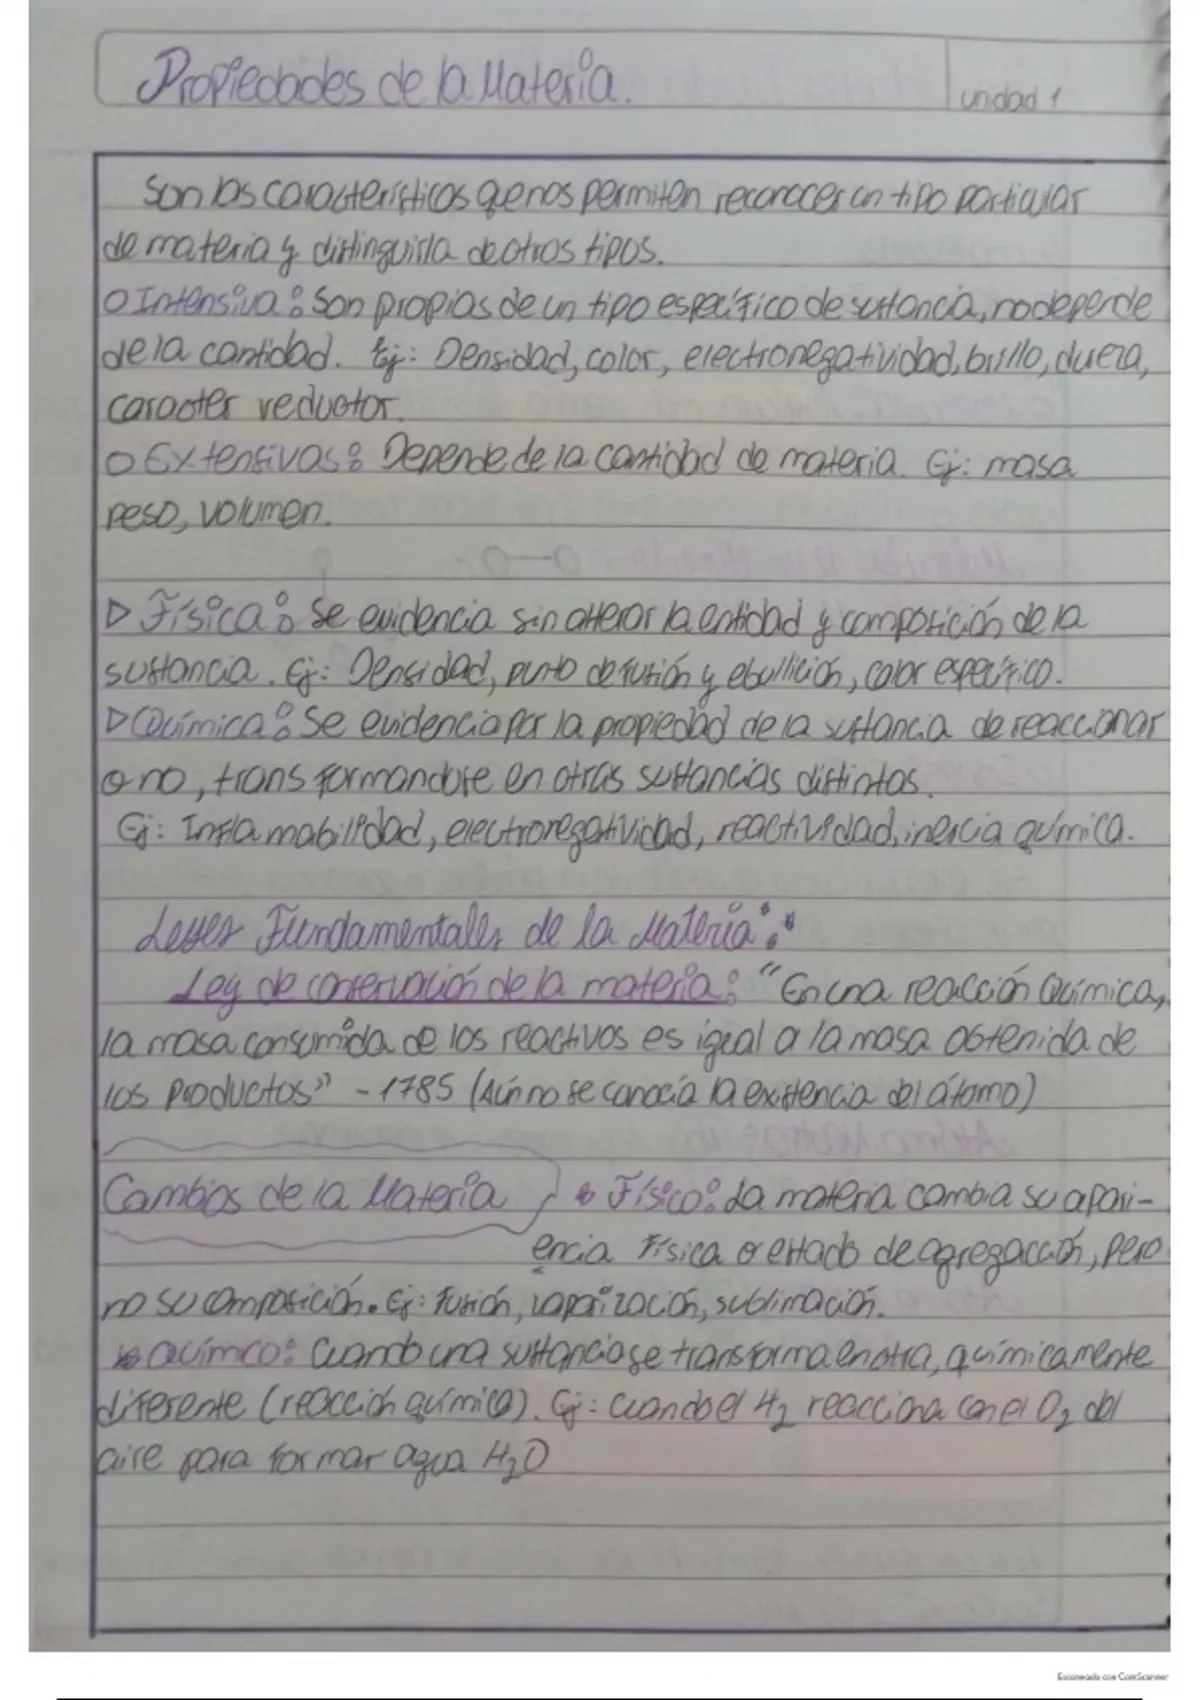 Propiedades de la Materia.
unidad 1
Son las características que nos permiten reconocer un tipo particular
de materia y distinguirla de otros tipos.
O Intensiva: Son propias de un tipo específico de sustancia, no depende
de la cantidad. Ej: Densidad, color, electronegatividad, brillo, dureza,
caracter reductor.
O Extensivas: Depende de la cantidad de materia. Ej: masa
peso, volumen.
▷ Física: Se evidencia sin alterar la entidad y composición de la
sustancia. Ej: Densidad, punto de fusión y ebullición, color específico.
▷ Química: Se evidencia por la propiedad de la sustancia de reaccionar
o no, transformandose en otras sustancias distintas.
Ej: Inflamabilidad, electronegatividad, reactividad, inercia química.
Leyes Fundamentales de la Materia:
Ley de conservación de la materia: "En una reacción Química,
la masa consumida de los reactivos es igual a la masa obtenida de
los productos" - 1785 (Aún no se conocía la existencia del átomo)
Cambios de la Materia
Físico: La materia cambia su apari-
encia física o estado de agregacción, pero
no su composición. Ej: fusión, vaporización, sublimación.
Químico: Cuando una sustancia se transforma en otra, químicamente
diferente (reacción química). Ej: cuando el H₂ reacciona con el O₂ del
aire para formar agua H₂O
Escaneado con CamScanner